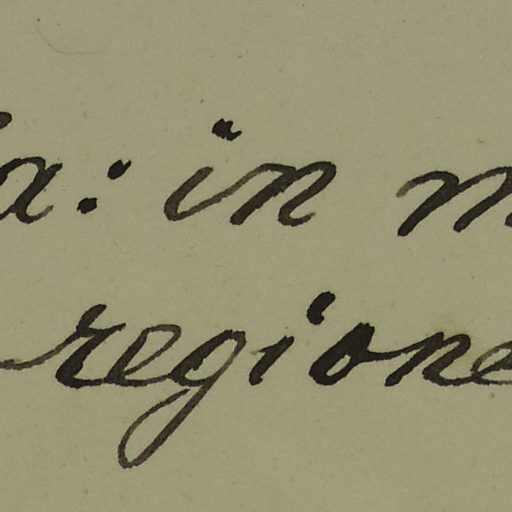 a: in m
regione